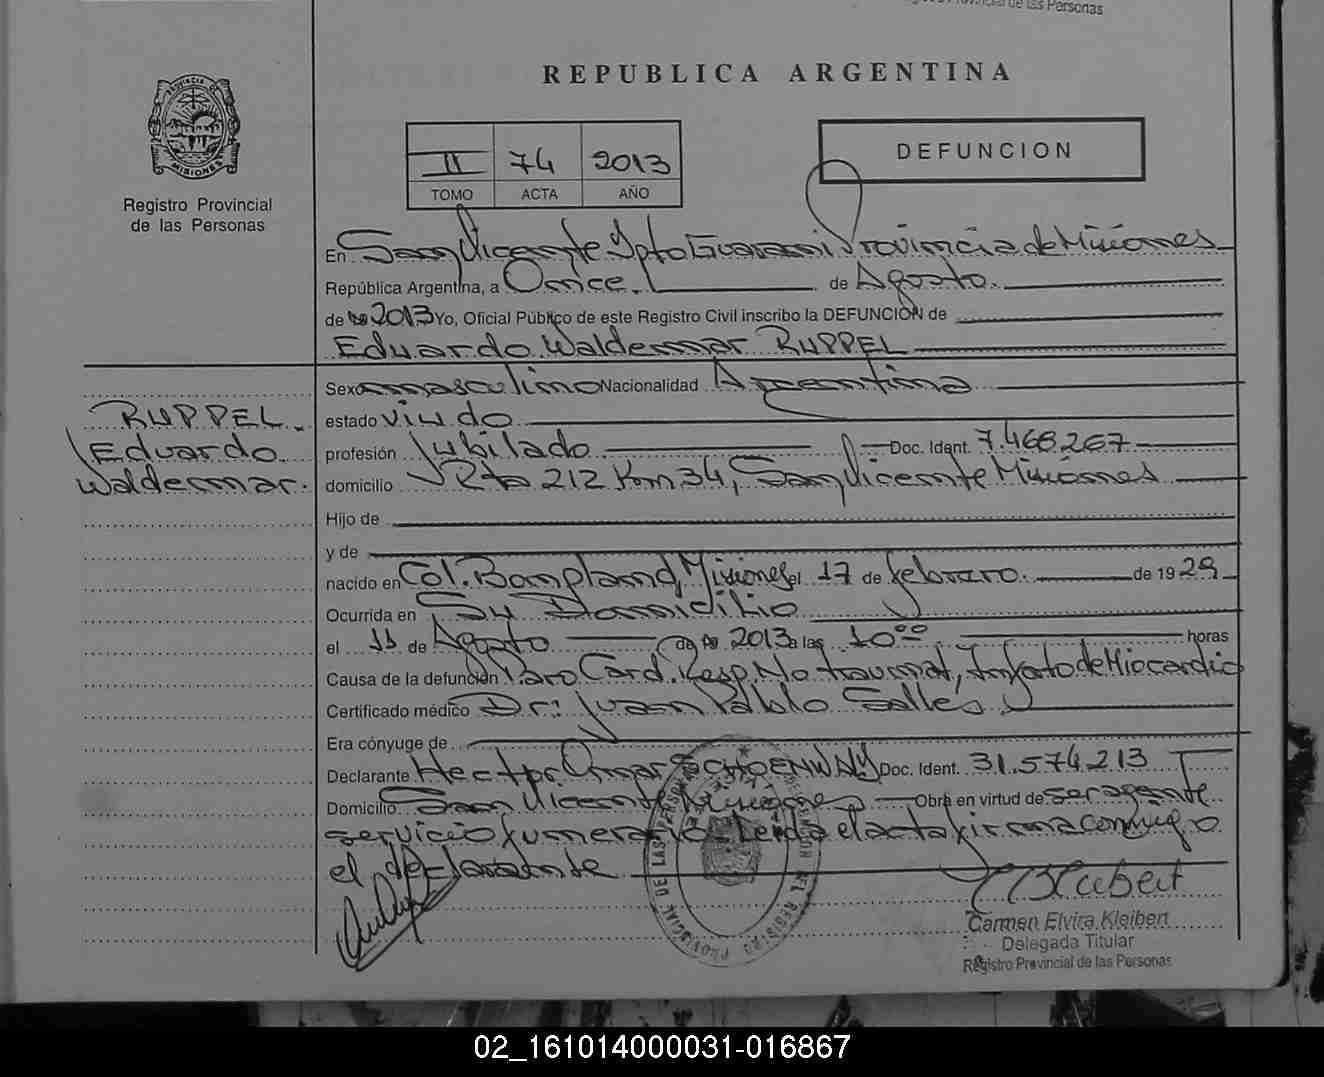 de las Personas
REPUBLICA ARGENTINA
PROVINCIA DE
MISIONES
Registro Provincial
de las Personas
II 74 2013
TOMO ACTA AÑO
DEFUNCION
En San Vicente Dpto Guarani Provincia de Misiones
República Argentina, a Once. de Agosto.
de 2013 Yo, Oficial Público de este Registro Civil inscribo la DEFUNCIÓN de
Eduardo Waldermar RUPPEL
RUPPEL
Eduardo
Waldermar.
Sexo masculino Nacionalidad Argentina
estado viudo
profesión Jubilado Doc. Ident. 7.468.267
domicilio Rta 212 Km 34, San Vicente Misiones
Hijo de
y de
nacido en Col. Bompland, Misiones el 17 de febrero. de 1929
Ocurrida en Su Domicilio
el 11 de Agosto de 2013 a las 10 00 horas
Causa de la defunción Paro Card. Resp. No traumat, Infarto de Miocardio
Certificado médico Dr: Juan Pablo Sallés
Era cónyuge de
Declarante Hector Omar SCHOENWALD Doc. Ident. 31.574.213
Domicilio San Vicente Misiones Obra en virtud de ser agente
servicio funerario. Leida el acta firma conmigo
el declarante
Carmen Elvira Kleibert
Delegada Titular
Registro Provincial de las Personas
02_161014000031-016867